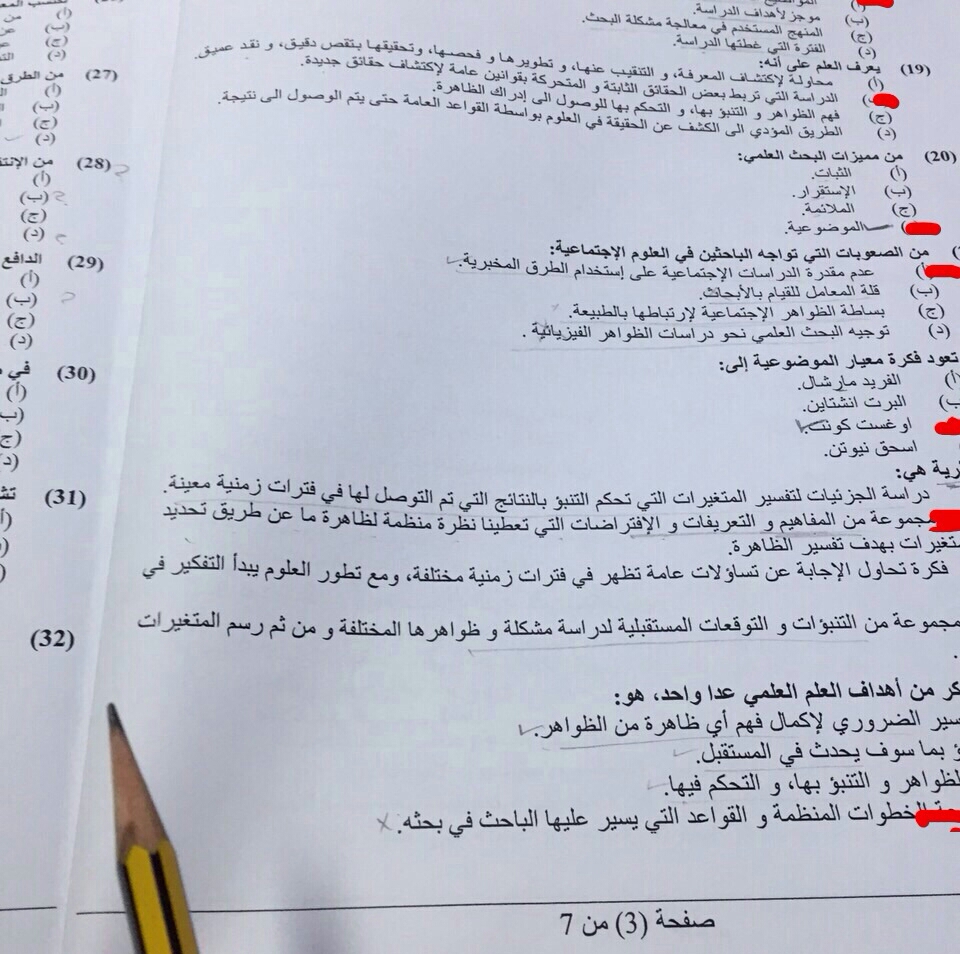 (ب) موجز لأهداف الدراسة.
(ج) المنهج المستخدم في معالجة مشكلة البحث.
(د) الفترة التي غطتها الدراسة.
(19) يعرف العلم على أنه:
(أ) محاولة لإكتشاف المعرفة، و التنقيب عنها، و تطويرها و فحصها، وتحقيقها بتقص دقيق، و نقد عميق.
الدراسة التي تربط بعض الحقائق الثابتة و المتحركة بقوانين عامة لإكتشاف حقائق جديدة.
(ج) فهم الظواهر و التنبؤ بها، و التحكم بها للوصول الى إدراك الظاهرة.
(د) الطريق المؤدي الى الكشف عن الحقيقة في العلوم بواسطة القواعد العامة حتى يتم الوصول الى نتيجة.
(20) من مميزات البحث العلمي:
(أ) الثبات.
(ب) الإستقرار.
(ج) الملائمة.
الموضوعية.
من الصعوبات التي تواجه الباحثين في العلوم الإجتماعية:
عدم مقدرة الدراسات الإجتماعية على إستخدام الطرق المخبرية.
(ب) قلة المعامل للقيام بالأبحاث.
(ج) بساطة الظواهر الإجتماعية لإرتباطها بالطبيعة.
(د) توجيه البحث العلمي نحو دراسات الظواهر الفيزيائية .
تعود فكرة معيار الموضوعية إلى:
أ) الفريد مارشال.
ب) البرت انشتاين.
اوغست كونت.
اسحق نيوتن.
هي:
دراسة الجزئيات لتفسير المتغيرات التي تحكم التنبؤ بالنتائج التي تم التوصل لها في فترات زمنية معينة.
مجموعة من المفاهيم و التعريفات و الإفتراضات التي تعطينا نظرة منظمة لظاهرة ما عن طريق تحديد
بهدف تفسير الظاهرة.
فكرة تحاول الإجابة عن تساؤلات عامة تظهر في فترات زمنية مختلفة، ومع تطور العلوم يبدأ التفكير في
مجموعة من التنبؤات و التوقعات المستقبلية لدراسة مشكلة و ظواهرها المختلفة و من ثم رسم المتغيرات
من أهداف العلم العلمي عدا واحد، هو:
الضروري لإكمال فهم أي ظاهرة من الظواهر.
بما سوف يحدث في المستقبل.
و التنبؤ بها، و التحكم فيها.
الخطوات المنظمة و القواعد التي يسير عليها الباحث في بحثه.
صفحة (3) من 7
(أ)
(ب)
(ج)
(د)
(27) من الطرق
(أ)
(ب)
(ج)
(د)
(28)
(أ)
(ب)
(ج)
(د)
(29) الدافع
(أ)
(ب)
(ج)
(د)
(30) في
(أ)
(31)
(32)